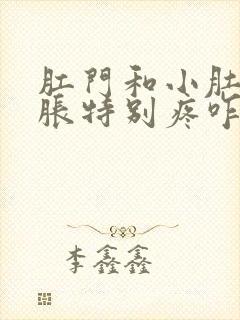 肛門和小肚
脹特别疼咋
李鑫鑫